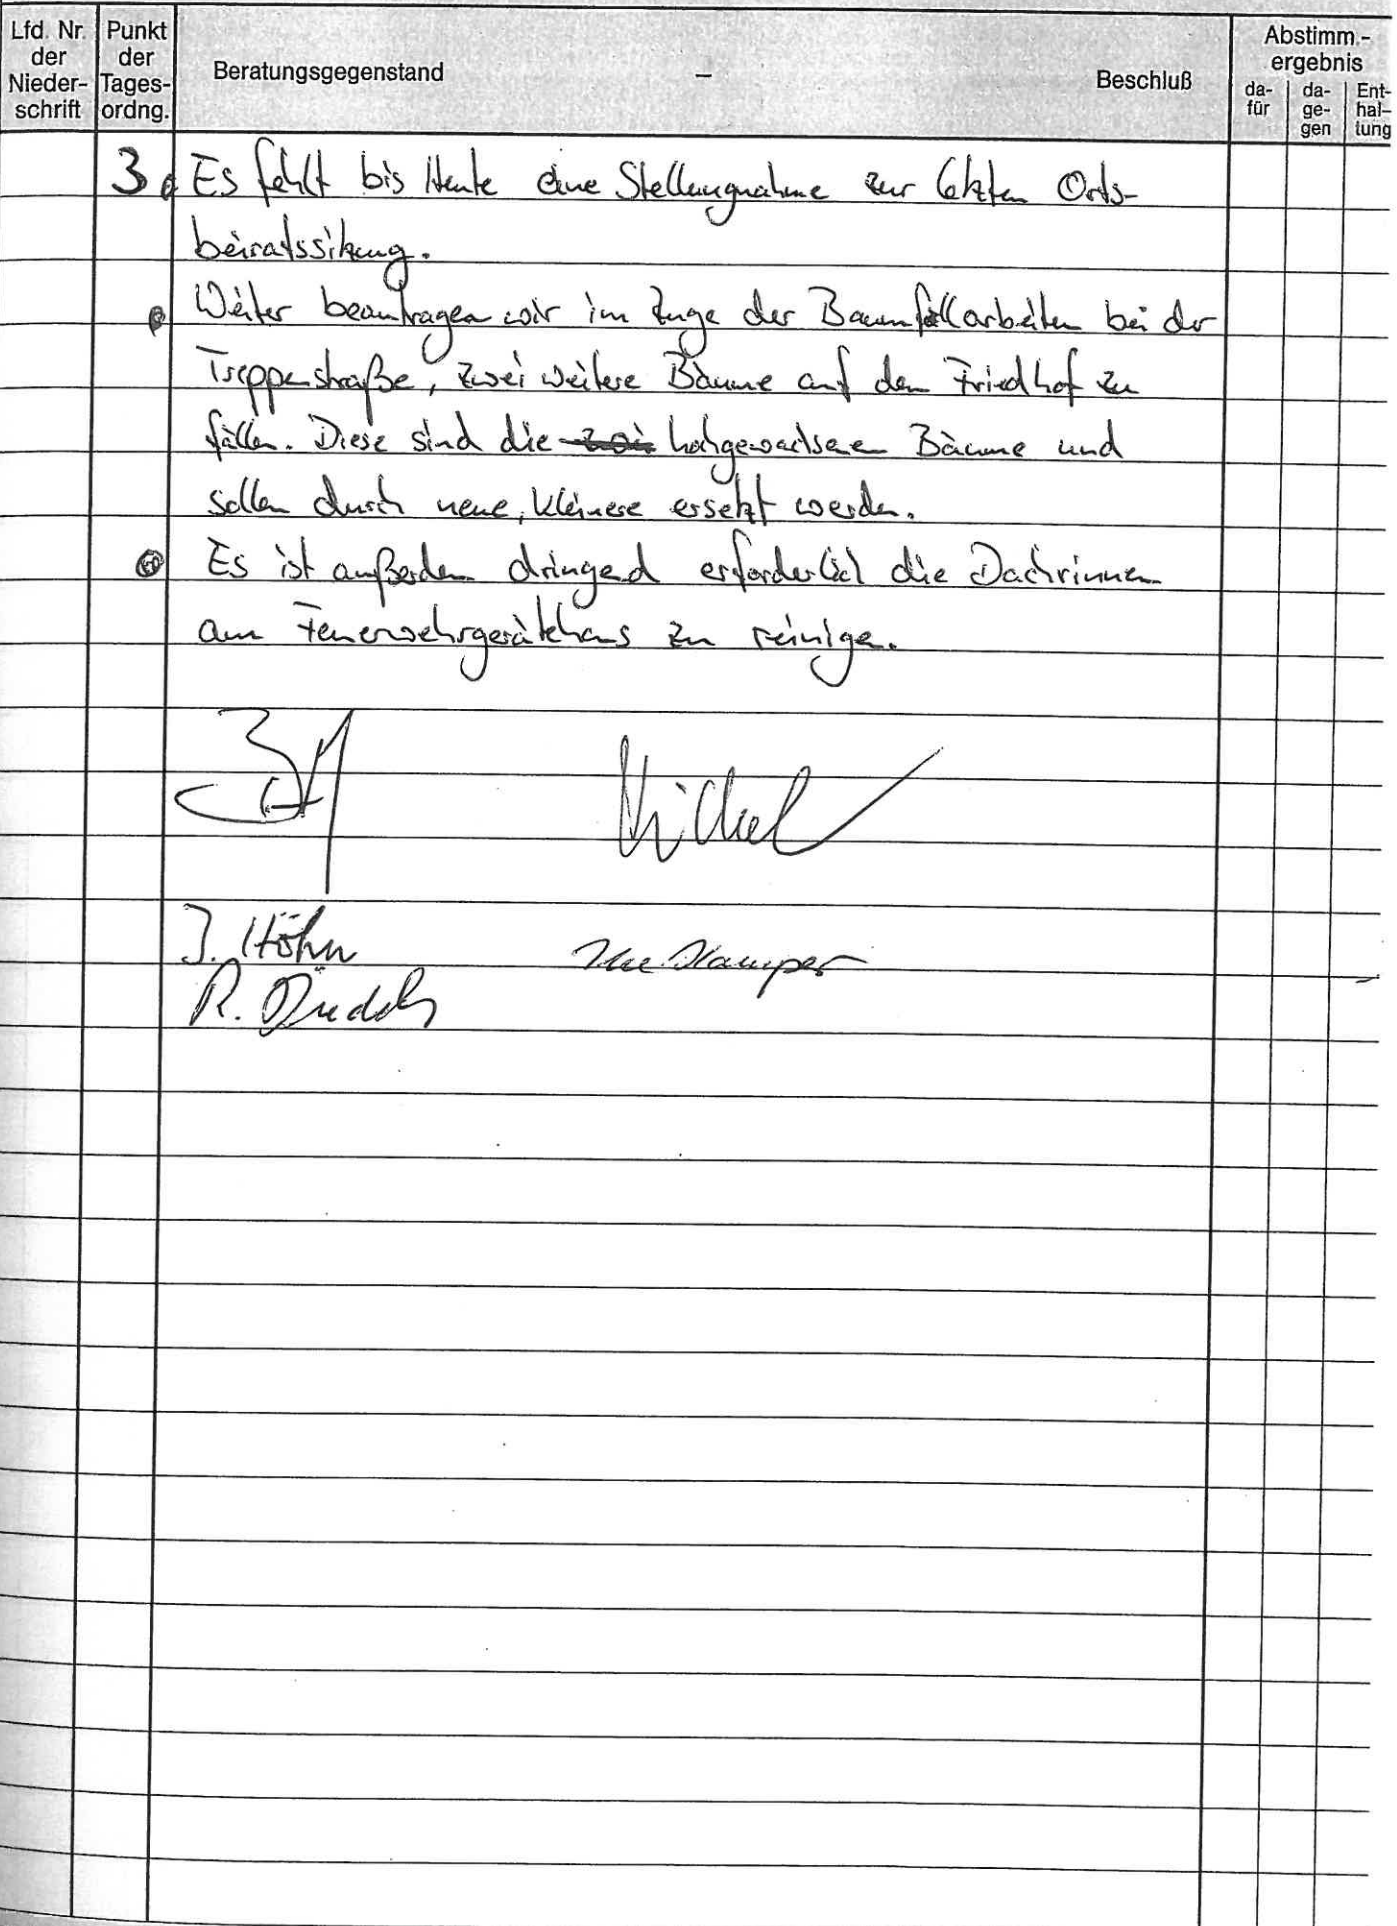 Lfd. Nr. der Nieder- schrift
Punkt der Tages- ordng.
Beratungsgegenstand – Beschluß
Abstimm.- ergebnis
da- für
da- ge- gen
Ent- hal- tung
3 Es fehlt bis Heute eine Stellungnahme zur letzten Orts-
beiratssitzung.
Weiter beantragen wir im Zuge der Baumfällarbeiten bei der
Treppenstraße, zwei weitere Bäume auf dem Friedhof zu
fällen. Diese sind die hochgewachsenen Bäume und
sollen durch neue, kleinere ersetzt werden.
Es ist außerdem dringend erforderlich die Dachrinnen
am Feuerwehrgerätehaus zu reinigen.
J. Höhn
R.